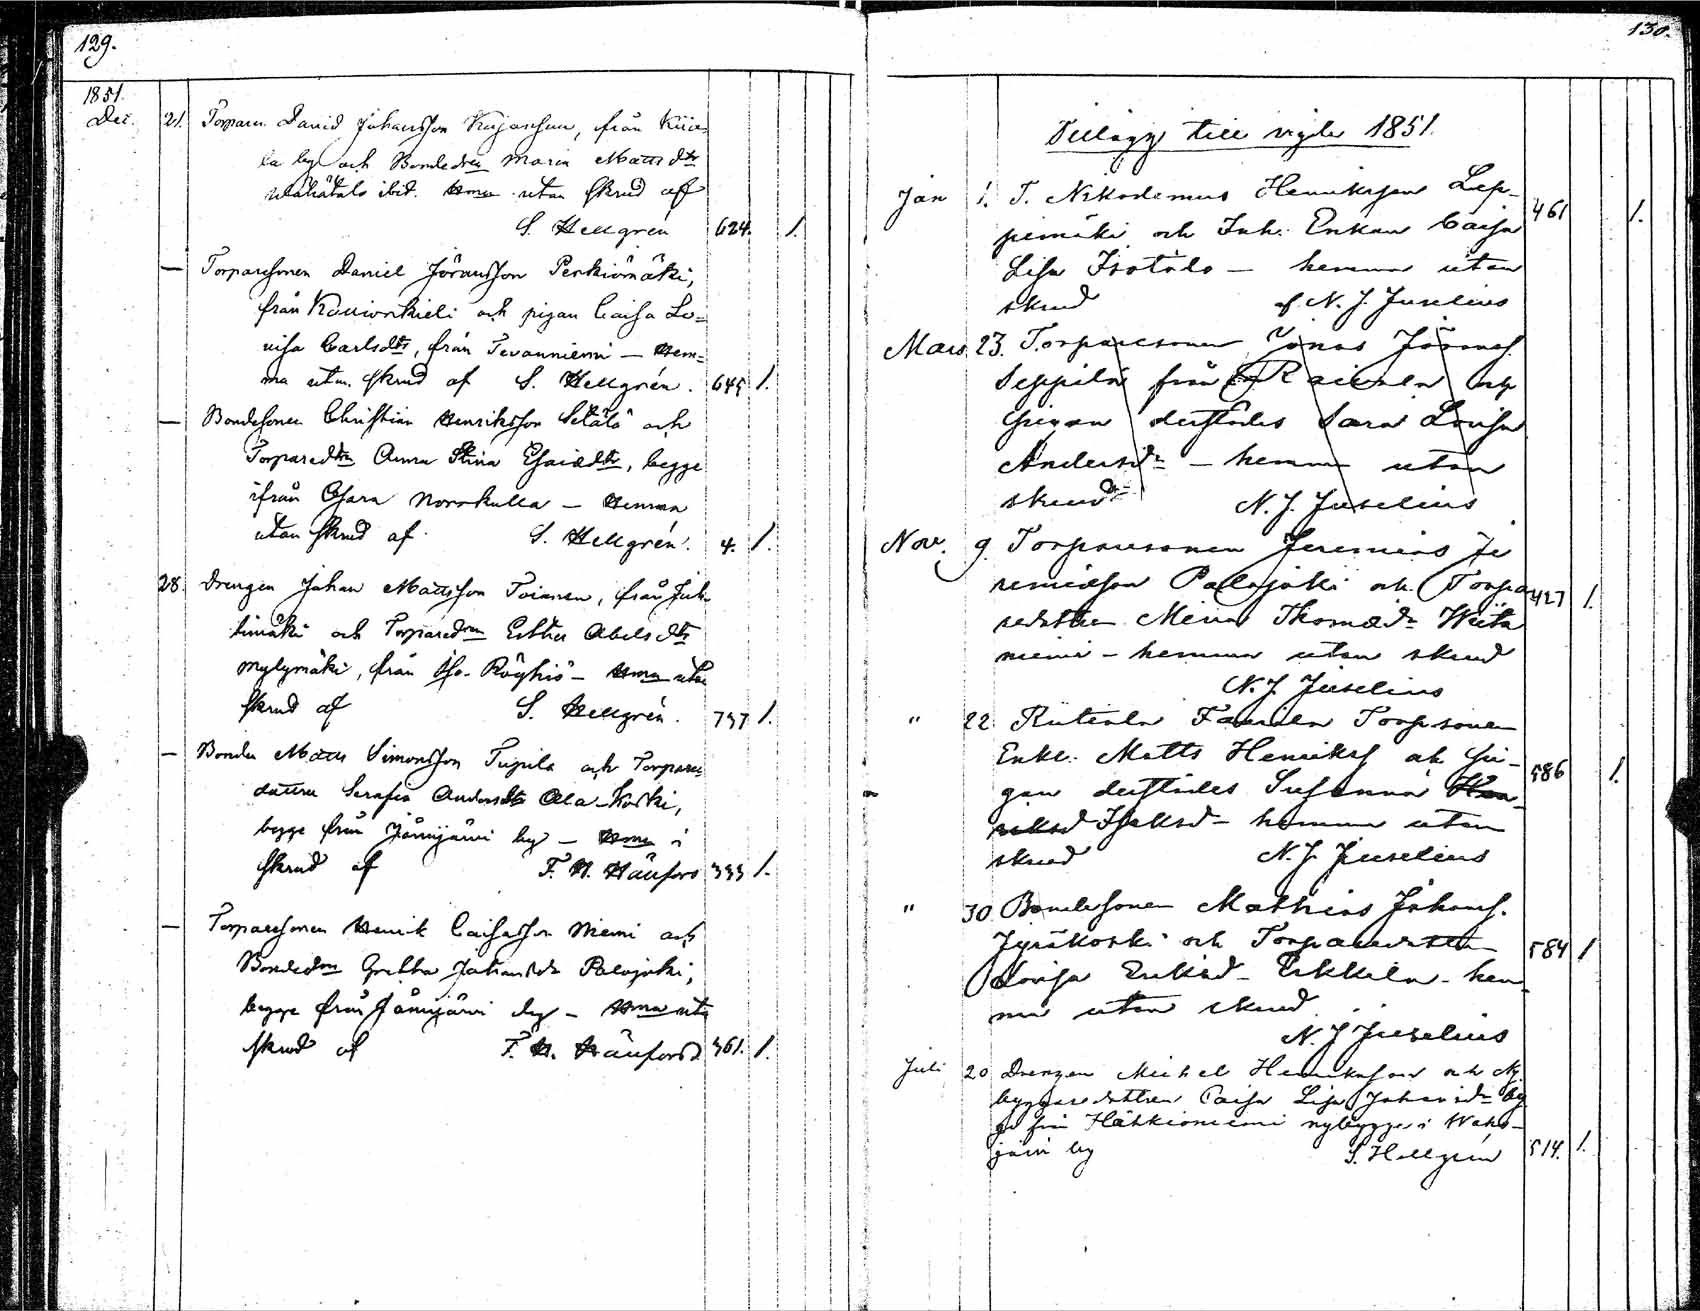 129.
1851.
Dec. 21. Torparen David Johansson Kujanssuu, från Kiik=
la by och Bondedrn Maria Mattsdtr
ibid. Hma utan skrud af
S. Hellgrén 624. 1.
— Torparesonen Daniel Jöransson Penkiömäki,
från och pigan Caisa Lo=
visa Carlsdtr, från Tevanniemi — Hem=
ma utan skrud af S. Hellgrén. 645 1.
— Bondesonen Christian Henriksson Setälä och
Torparedtrn Anna Stina Esaiædtr, begge
ifrån Osara Norrkulla — Hemma
utan skrud af S. Hellgrén. 4. 1.
28. Drengen Johan Mattsson Toivonen, från Juh
timäki och Torparedrn Esther Abelsdtr
Myllymäki, från Iso-Röyhiö — Hma utan
skrud af S. Hellgrén. 797 1.
— Bonden Matts Simonsson Tupila och Torpare
dottren Serafia Andersdtr Ala-Koski,
begge från Jämijärvi by — Hma i
skrud af F. H. Hänfors 333 1.
— Torparesonen Henrik Caisasson Niemi och
Bondedrn Gretha Johansdtr Palojoki,
begge från Jämijärvi by — Hma utan
skrud af F. H. Hänfors 361. 1.
130.
Tillägg till vigde 1851.
Jan 1. T. Nikodemus Henriksson Lep-
pimäki och Inh. Enkan Caisa
Lisa Isotalo — hemma utan
skrud af N. J. Juselius 461 1.
Mars 23. Torparesonen Jonas Jöransf.
Seppilä från Raivala och
Pigan derstädes Sara Lovisa
Andersdr — hemma utan
skrud N. J. Juselius
Nov. 9. Torparesonen Jeremias Je
remiæson Palojoki och Torpa
redottren Mina Thomædr Wiita
niemi — hemma utan skrud
N. J. Juselius 427 1.
" 22. Torpsonen
Enkl. Matts Henriksf och Pi-
gan derstädes Susanna Hen-
riksd Isaksd — hemma utan
skrud N. J. Juselius 586 1.
" 30 Bondesonen Mathias Johansf.
Jyräkoski och Torparedottren
Lovisa Eriksd — Erkkilä — hem-
ma utan skrud
N. J. Juselius 584 1
Juli 20 Drengen Michel Henriksson och Ny-
byggaredottren Caisa Lisa Johansdr beg
ge från Hätkioniemi nybygge i Waho-
järvi by S. Hellgrén 514. 1.